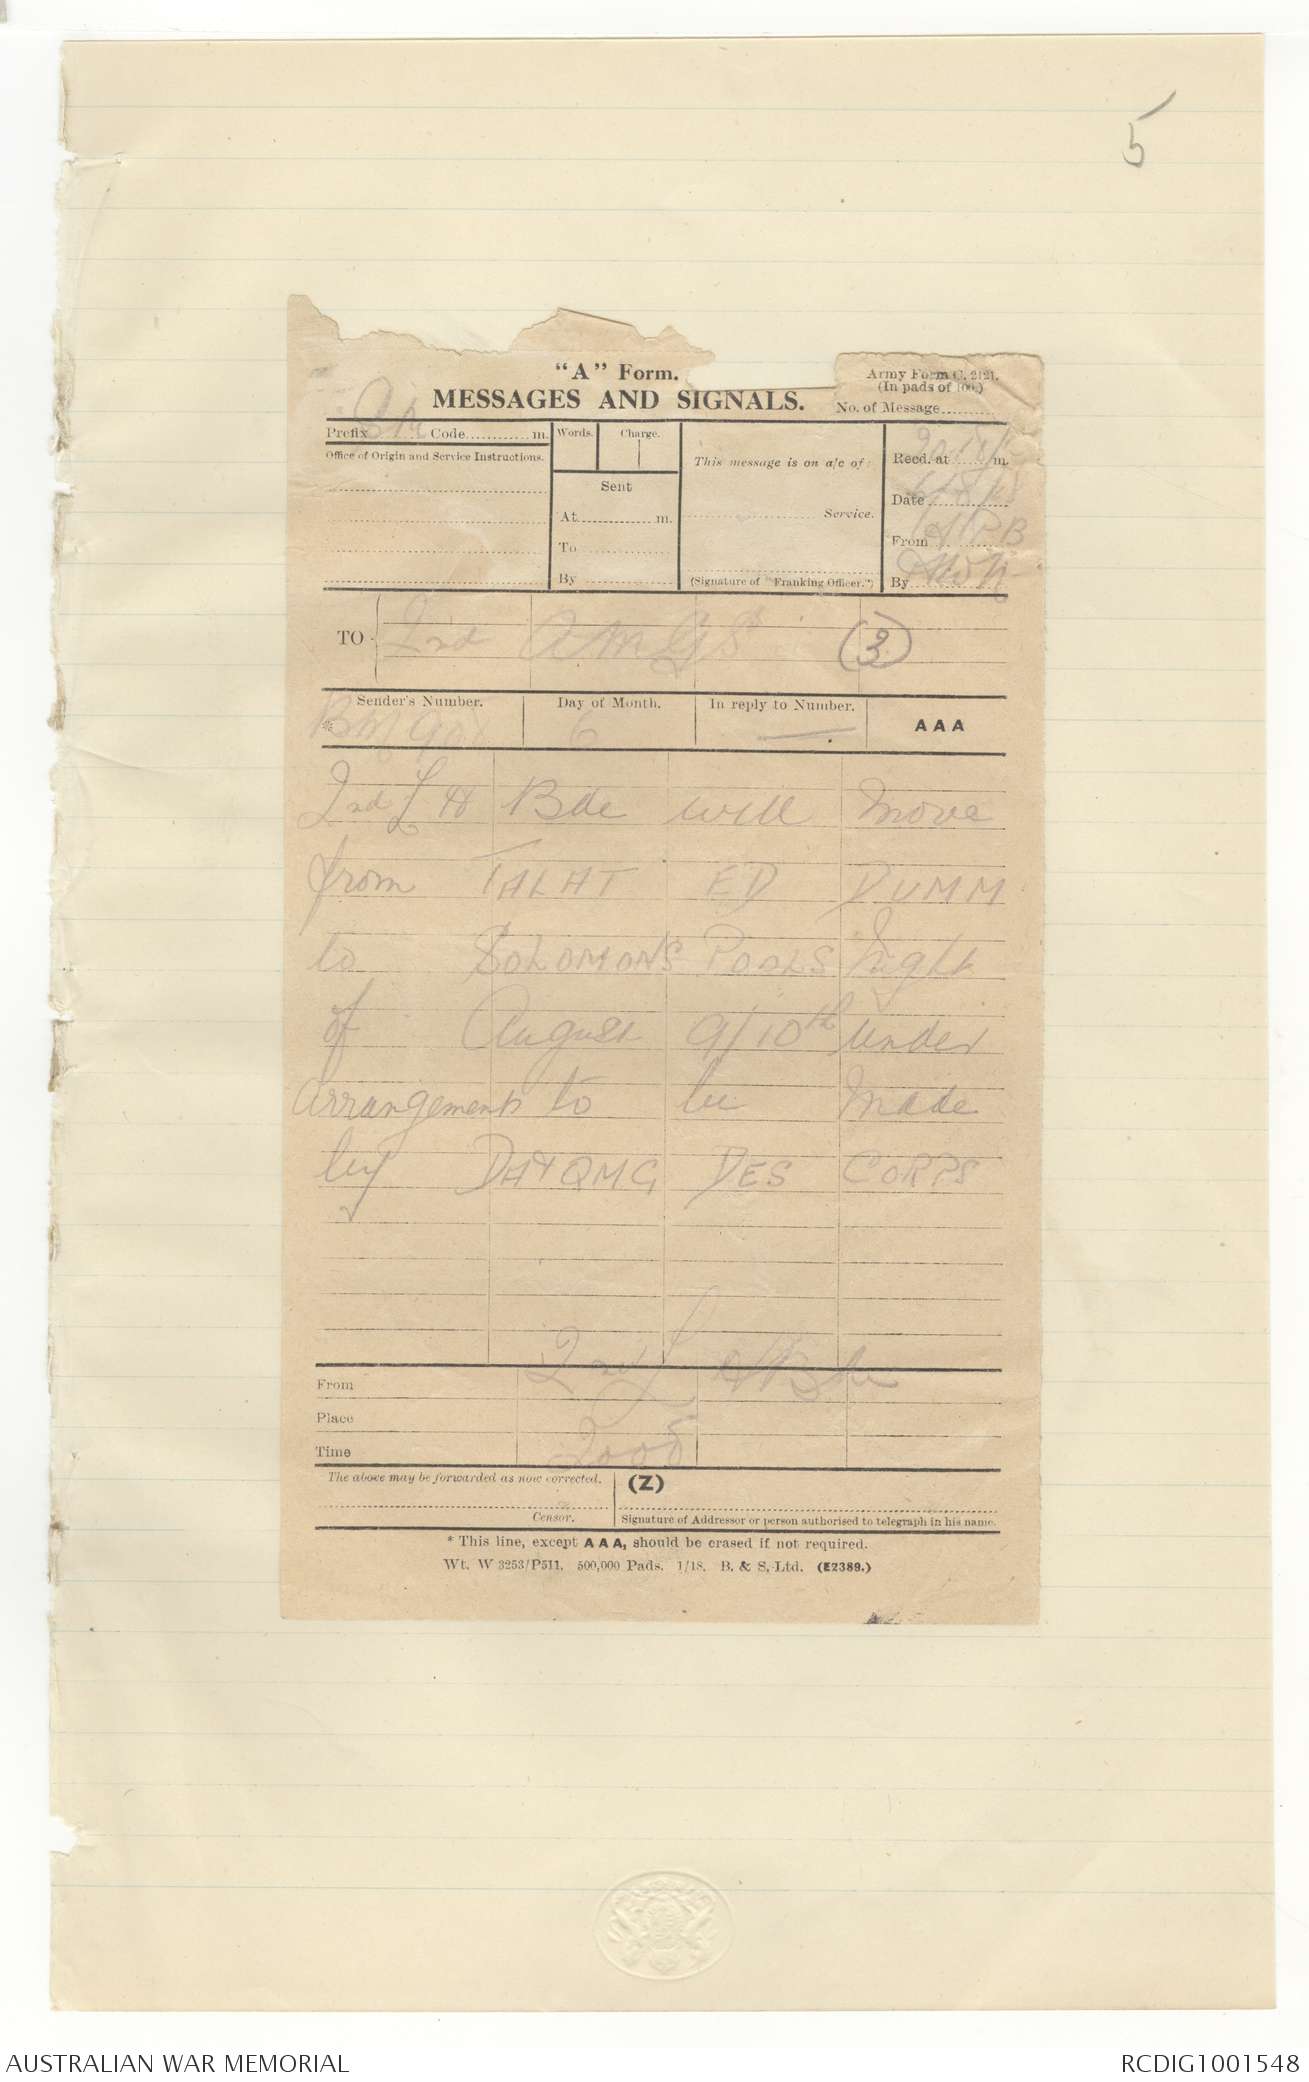 5
"A" Form.
MESSAGES AND SIGNALS.
Army Form C. 2121.
(In pads of 100.)
No. of Message..........
Prefix Sm Code............ m.
Words.
Charge.
Office of Origin and Service Instructions.
Sent
At............... m.
To..............
By..............
This message is on a/c of:
Service.
(Signature of "Franking Officer.")
Recd. at m.
Date 6/8/18
From
By
TO 2nd AMGS (3)
Sender's Number.
Day of Month.
In reply to Number.
AAA
* BM 6 —
2nd L H Bde will move
from TALAT ED DUMM
to SOLOMONS POOLS night
of August 9/10th under
arrangements to be made
by DA+QMG DES CORPS
From 2nd L H Bde
Place
Time 2008
The above may be forwarded as now corrected.
(Z)
Censor.
Signature of Addressor or person authorised to telegraph in his name.
* This line, except AAA, should be erased if not required.
Wt. W 3253/P511. 500,000 Pads. 1/18. B. & S. Ltd. (E2389.)
AUSTRALIAN WAR MEMORIAL
RCDIG1001548